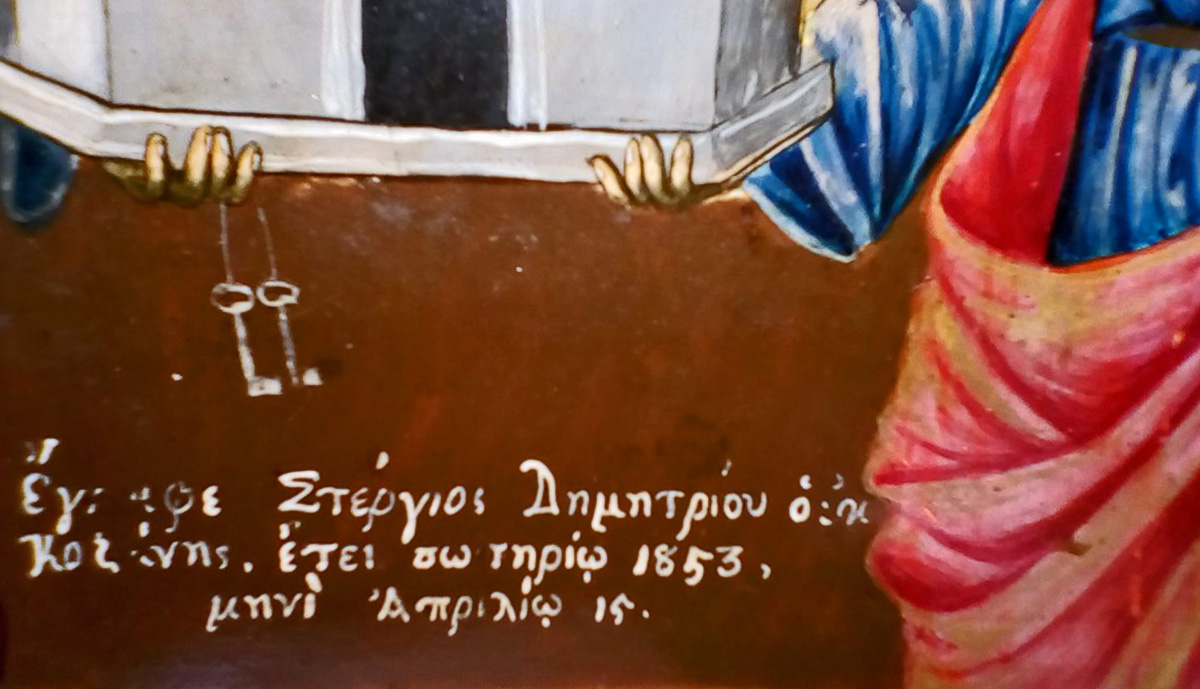 Ἔγραφε Στέργιος Δημητρίου ὁ ἐκ
Κοζάνης. ἔτει σωτηρίῳ 1853,
μηνὶ Ἀπριλίῳ 15.